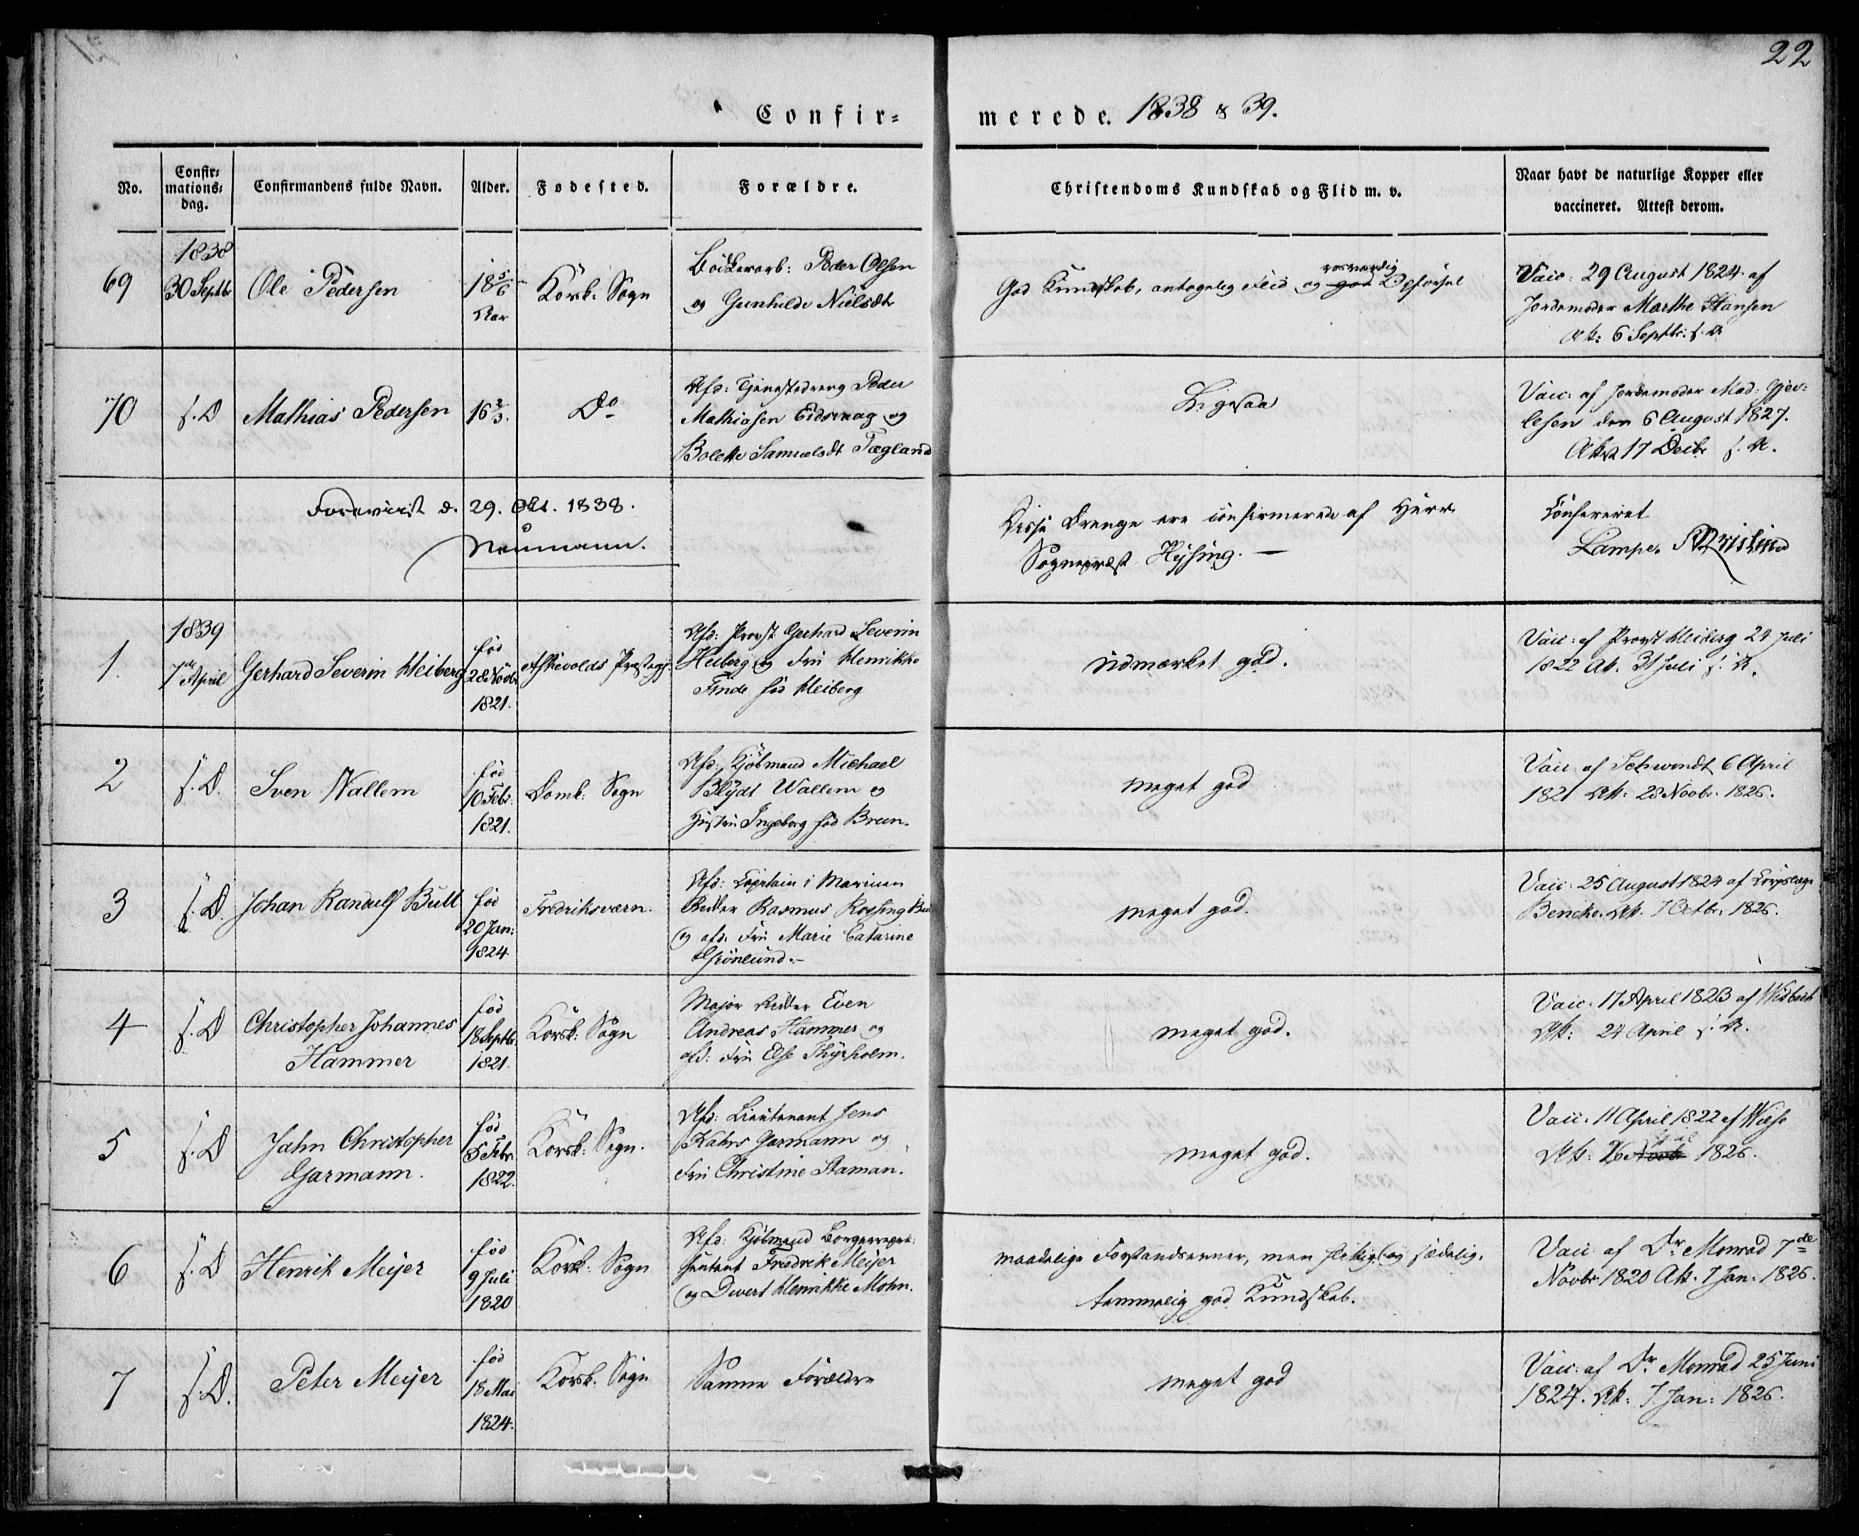 22
Confir=
merede. 1838 & 39.
No.
Confir=
mations=
dag.
Confirmandens fulde Navn.
Alder.
Fødested.
Forældre.
Christendoms Kundskab og Flid m. v.
Naar havt de naturlige Kopper eller
vaccineret. Attest derom.
69
1838
30 Septbr
Ole Pedersen
18 5/6
Aar
Korsk: Sogn
Bødkerarb: Peder Olsen
og Gunhilde Nielsdt
God Kundskab, antagelig Flid og god Opførsel
Vacc: 29 August 1824 af
Jordemoder Marthe Hansen
Att: 6 Septbr: s. A
70
s. D
Mathias Pedersen
16 2/3.
Do
Afd: Tjenestedreng Peder
Mathiasen Eidsvaag og
Bolette Samuelsdt Tægland
Ligesaa
Vacc: af Jordemoder Mad: Gjer-
lesen den 6 August 1827.
Att 17 Decbr s. A.
Foreviist d. 29. Oct. 1838.
Neumann.
Disse Drenge ere confirmerede af Herr
Sognepræst Hysing. —
Confereret
Lampe.
1.
1839
7de April
Gerhard Severin Heiberg
fød
28 Novbr
1821.
Askevolds Præstegj.
Afd: Provst Gerhard Severin
Heiberg og Fru Henrikke
Finde fød Heiberg
udmærket god.
Vacc: af Provst Heiberg 24 Juli
1822 At. 31 Juli s. A.
2
s. D.
Sven Wallem
fød
10 Febr:
1821.
Domk: Sogn
Afd: Kjøbmand Michael
Blydt Wallem og
Hustru Ingeborg fød Bruun.
meget god
Vacc: af Schwindt 6 April
1821 Att: 28 Novbr. 1826.
3
s. D.
Johan Randulf Bull
fød
20 Jan:
1824
Fredriksværn.
Afd: Captain i Marinen
Ridder Rasmus Rossing Bull
og afd: Fru Marie Catarine
Grønlund.-
meget god.
Vacc: 25 August 1824 af Corpslæge
Bencke. Att. 7 Octbr: 1826.
4
s. D
Christopher Johannes
Hammer
fød
18 Septbr.
1821.
Korsk: Sogn
Major Ridder Even
Andreas Hammer og
afd: Fru Else Thyrholm.
meget god.
Vacc: 17 April 1823 af Wisbech
Att: 24 April s. A.
5
s. D
Jahn Christopher
Garmann.
fød
5 Febr.
1822.
Korsk: Sogn.
Afd: Lieutenant Jens
Kahrs Garmann og
Fru Christine Haman.
meget god.
Vacc: 11 April 1822 af Wiese
Att: 26 Novb 1826.
6
s. D
Henrik Meyer
fød
9 Juli
1820
Korsk: Sogn
Afd: Kjøbmand Borgerrepræ-
sentant Fredrik Meyer
og Divert Henrikke Mohn.
maadelige Forstandsevner, men flittig og sædelig.
temmelig god Kundskab.
Vacc: af Dr Monrad 7de
Novbr 1820 At. 7 Jan: 1826.
7
s. D.
Peter Meyer
fød
18 Mai
1824.
Korsk: Sogn
Samme Forældre
meget god
Vacc: af Dr Monrad 25 Juni
1824. Att. 7. Jan: 1826.